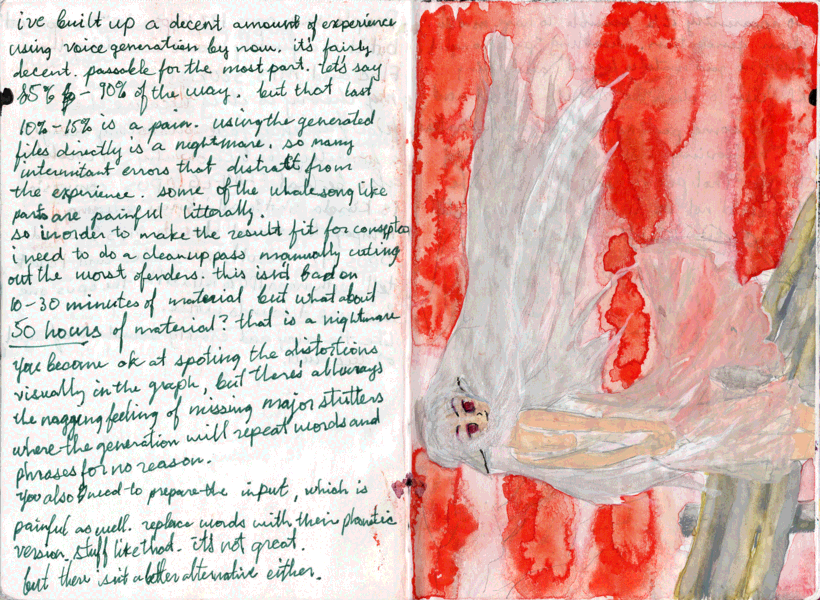 ive built up a decent amound of experience
using voice generation by now. it's fairly
decent. passable for the most part. let's say
85% - 90% of the way. but that last
10%-15% is a pain. using the generated
files directly is a nightmare. so many
intermitant errors that distratt from
the experience. some of the whale song like
parts are painful litterally.
so in order to make the result fit for
i need to do a cleanup pass manually cuting
out the worst ofenders. this isn't bad on
10-30 minutes of material but what about
50 hours of material? that is a nightmare
you become ok at spoting the distortions
visually in the graph, but there's allways
the nagging feeling of missing major stutters
where the generation will repeat words and
phrases for no reason.
you also need to prepare the input, which is
painful as well. replace words with their phonetic
version. stuff like that. it's not great.
but there isn't a better alternative either.